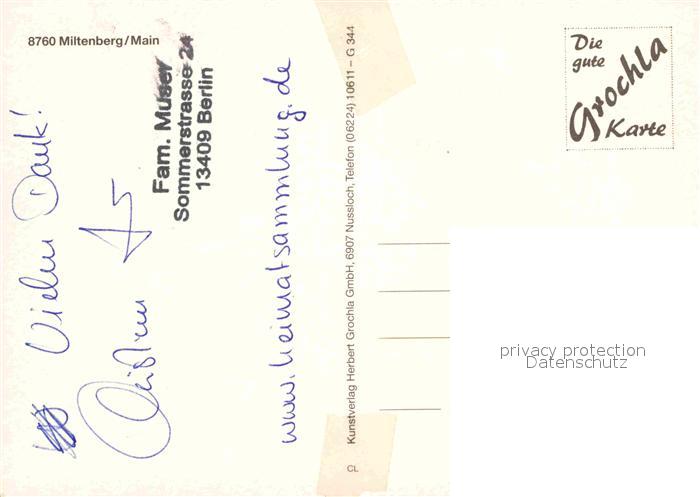 8760 Miltenberg/Main
Vielen Dank!
Fam. Muser
Sommerstrasse 24
13409 Berlin
www.heimatsammlung.de
Kunstverlag Herbert Grochla GmbH, 6907 Nussloch, Telefon (06224) 10611 – G 344
CL
Die
gute
Grochla
Karte
privacy protection
Datenschutz